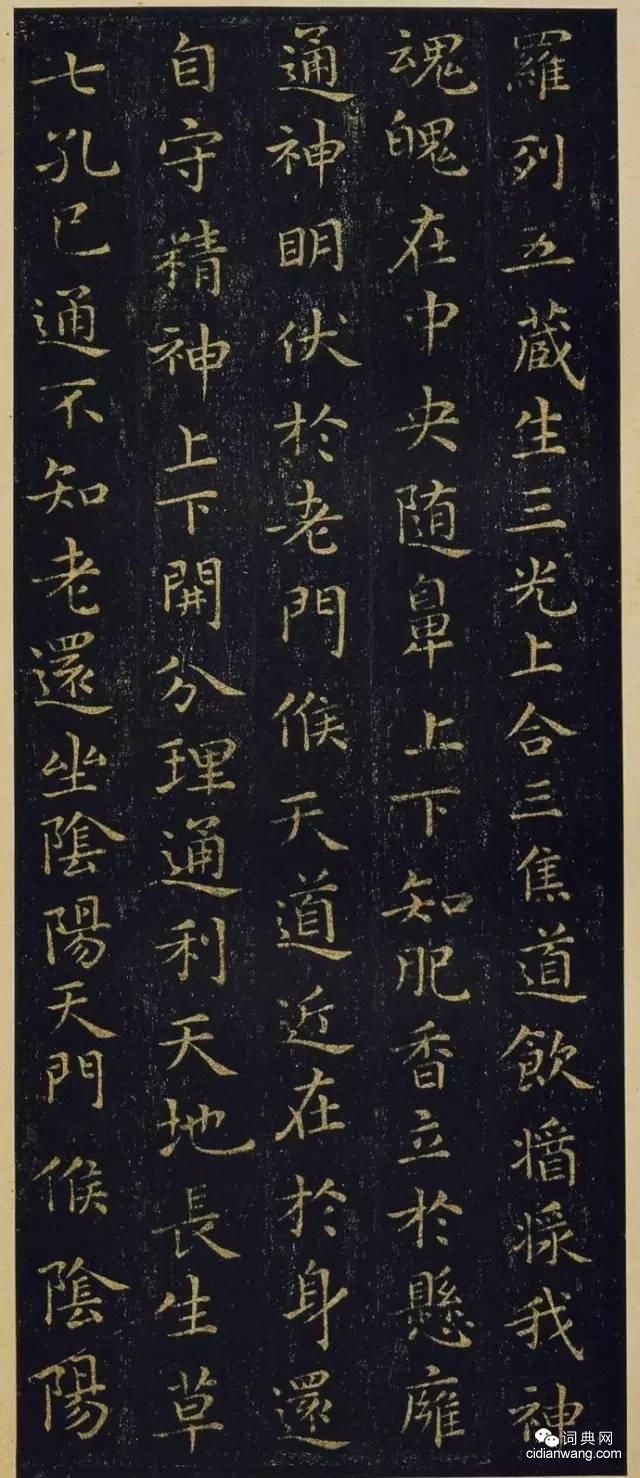 羅列五藏生三光上合三焦道飲醬漿我神
魂魄在中央随鼻上下知肥香立於懸廱
通神明伏於老門候天道近在於身還
自守精神上下開分理通利天地長生草
七孔已通不知老還坐陰陽天門候陰陽
词典网
cidianwang.com